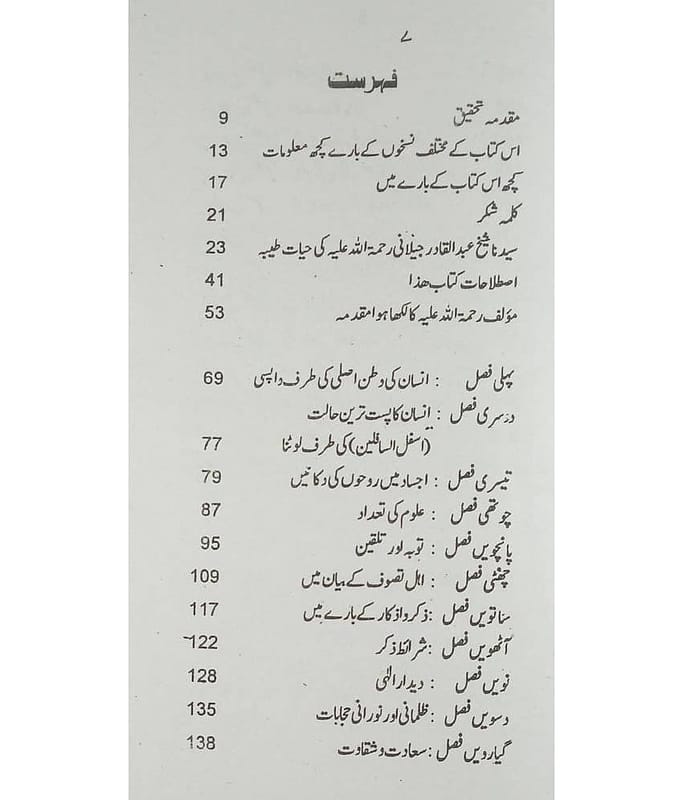 ۷
فہرست
مقدمہ تحقیق 9
اس کتاب کے مختلف نسخوں کے بارے کچھ معلومات 13
کچھ اس کتاب کے بارے میں 17
کلمہ شکر 21
سیدنا شیخ عبدالقادر جیلانی رحمۃ اللہ علیہ کی حیات طیبہ 23
اصطلاحات کتاب ھذا 41
مؤلف رحمۃ اللہ علیہ کا لکھا ہوا مقدمہ 53
پہلی فصل : انسان کی وطن اصلی کی طرف واپسی 69
دوسری فصل : انسان کا پست ترین حالت
(اسفل السافلین) کی طرف لوٹنا 77
تیسری فصل : اجساد میں روحوں کی دکانیں 79
چوتھی فصل : علوم کی تعداد 87
پانچویں فصل : توبہ اور تلقین 95
چھٹی فصل : اہل تصوف کے بیان میں 109
ساتویں فصل : ذکر و اذکار کے بارے میں 117
آٹھویں فصل : شرائط ذکر 122
نویں فصل : دیدار الٰہی 128
دسویں فصل : ظلمانی اور نورانی حجابات 135
گیارویں فصل : سعادت و شقاوت 138